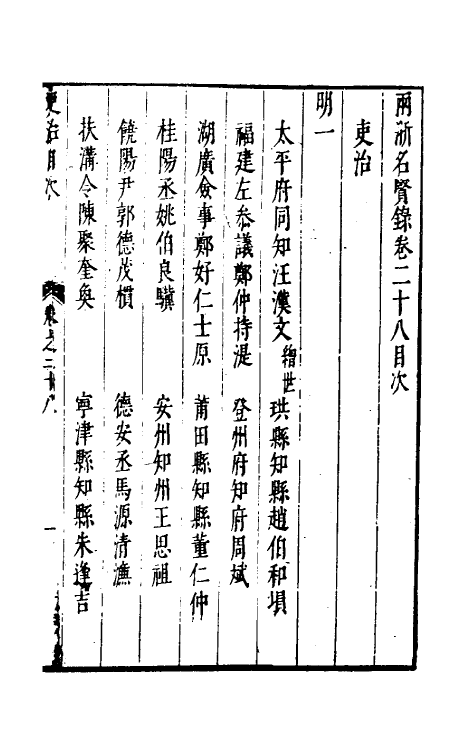 兩浙名賢錄卷二十八目次
吏治
明一
太平府同知汪漢文繒世 珙縣知縣趙伯和塤
福建左叅議鄭仲持湜 登州府知府周斌
湖廣僉事鄭好仁士原 莆田縣知縣董仁仲
桂陽丞姚伯良驥 安州知州王思祖
饒陽尹郭德茂槓 德安丞馬源清濂
扶溝令陳聚奎奐 寧津縣知縣朱逢吉
吏治目次 卷之二十八 一